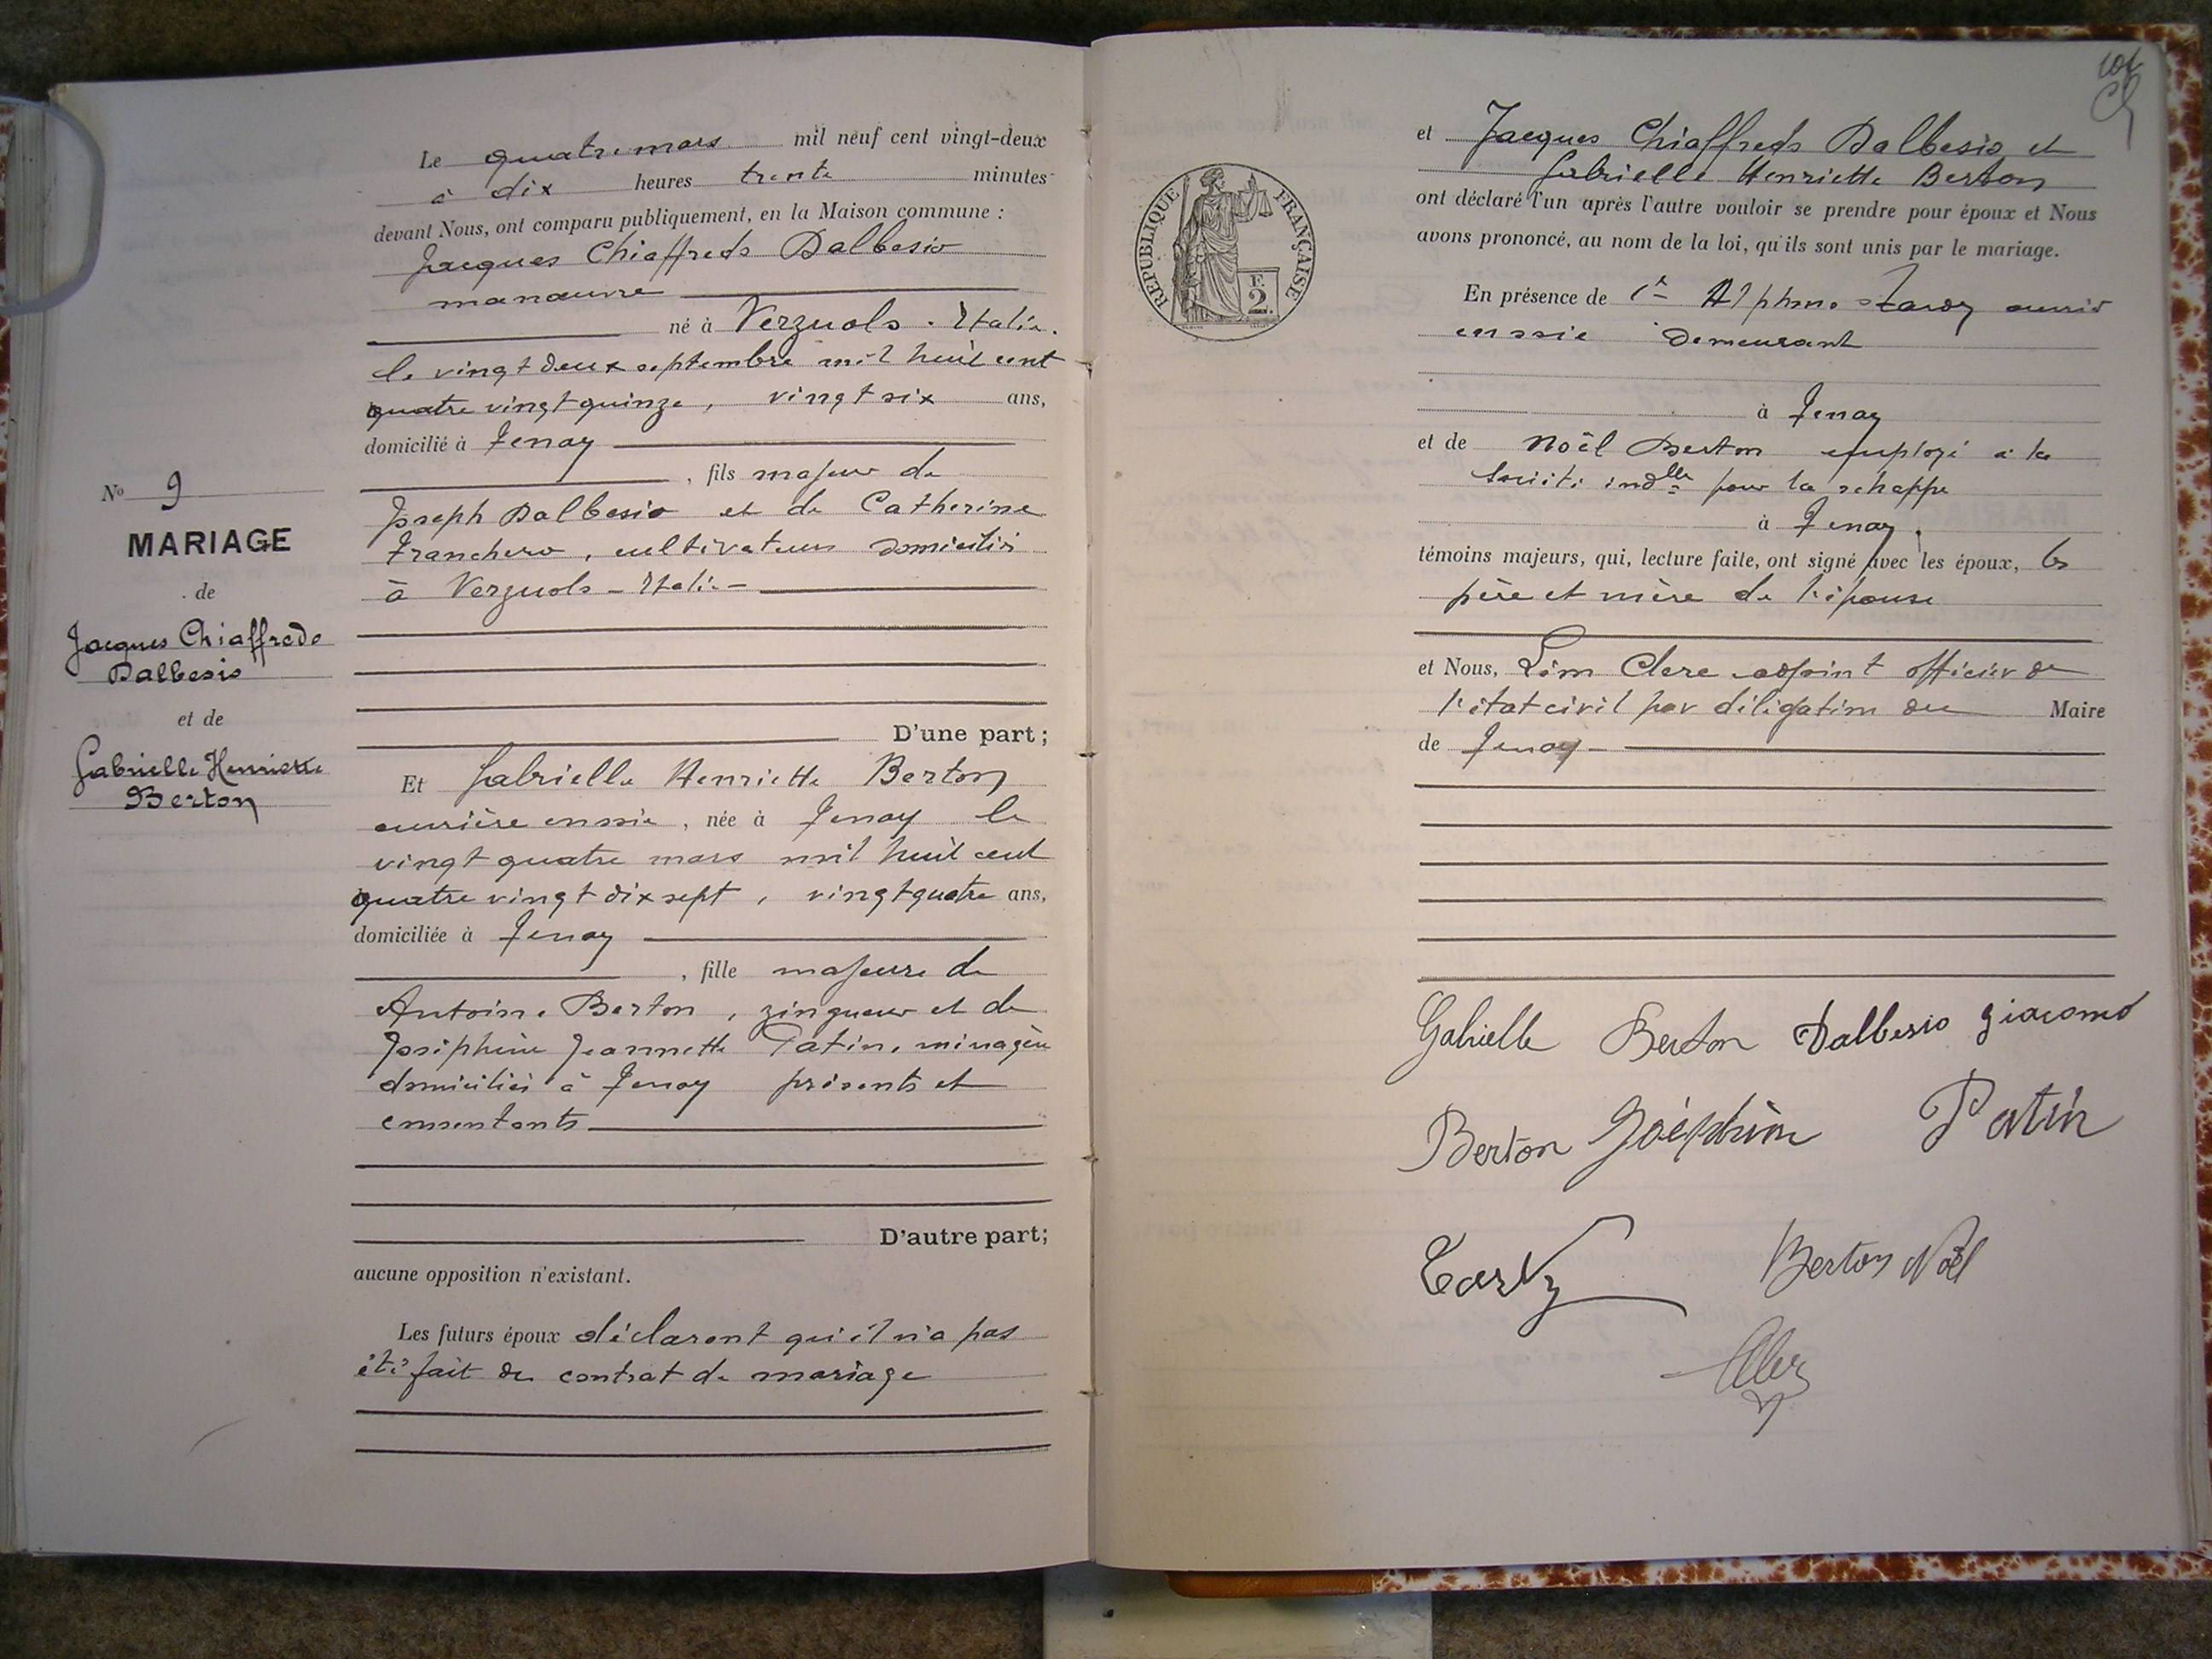 Le quatre mars mil neuf cent vingt-deux
à dix heures trente minutes
devant Nous, ont comparu publiquement, en la Maison commune :
Jacques Chiaffredo Dalbesio
manœuvre
né à Verzuolo. Italie.
le vingt deux septembre mil huit cent
quatre vingt quinze, vingt six ans,
domicilié à Tenay
, fils majeur de
Joseph Dalbesio et de Catherine
Franchero, cultivateurs domiciliés
à Verzuolo - Italie -
D'une part;
Nº 9
MARIAGE
de
Jacques Chiaffredo
Dalbesio
et de
Gabrielle Henriette
Berton
Et Gabrielle Henriette Berton
ouvrière en soie, née à Tenay le
vingt quatre mars mil huit cent
quatre vingt dix sept, vingt quatre ans,
domiciliée à Tenay
, fille majeure de
Antoine Berton, zingueur et de
Joséphine Jeannette Patin, ménagère
domiciliés à Tenay présents et
consentants
D'autre part;
aucune opposition n'existant.
Les futurs époux déclarent qu'il n'a pas
été fait de contrat de mariage
et Jacques Chiaffredo Dalbesio et
Gabrielle Henriette Berton
ont déclaré l'un après l'autre vouloir se prendre pour époux et Nous
avons prononcé, au nom de la loi, qu'ils sont unis par le mariage.
RÉPUBLIQUE FRANÇAISE
F.
2.
En présence de Alphonse Tardy ouvrier
en soie demeurant
à Tenay
et de Noël Berton employé à la
Société ind.lle pour la schappe
à Tenay.
témoins majeurs, qui, lecture faite, ont signé avec les époux, les
père et mère de l'épouse
et Nous, Léon Clerc adjoint officier de
l'état civil par délégation du Maire
de Tenay -
Gabrielle Berton Dalbesio Giacomo
Berton Joséphine Patin
Tardy Berton Noël